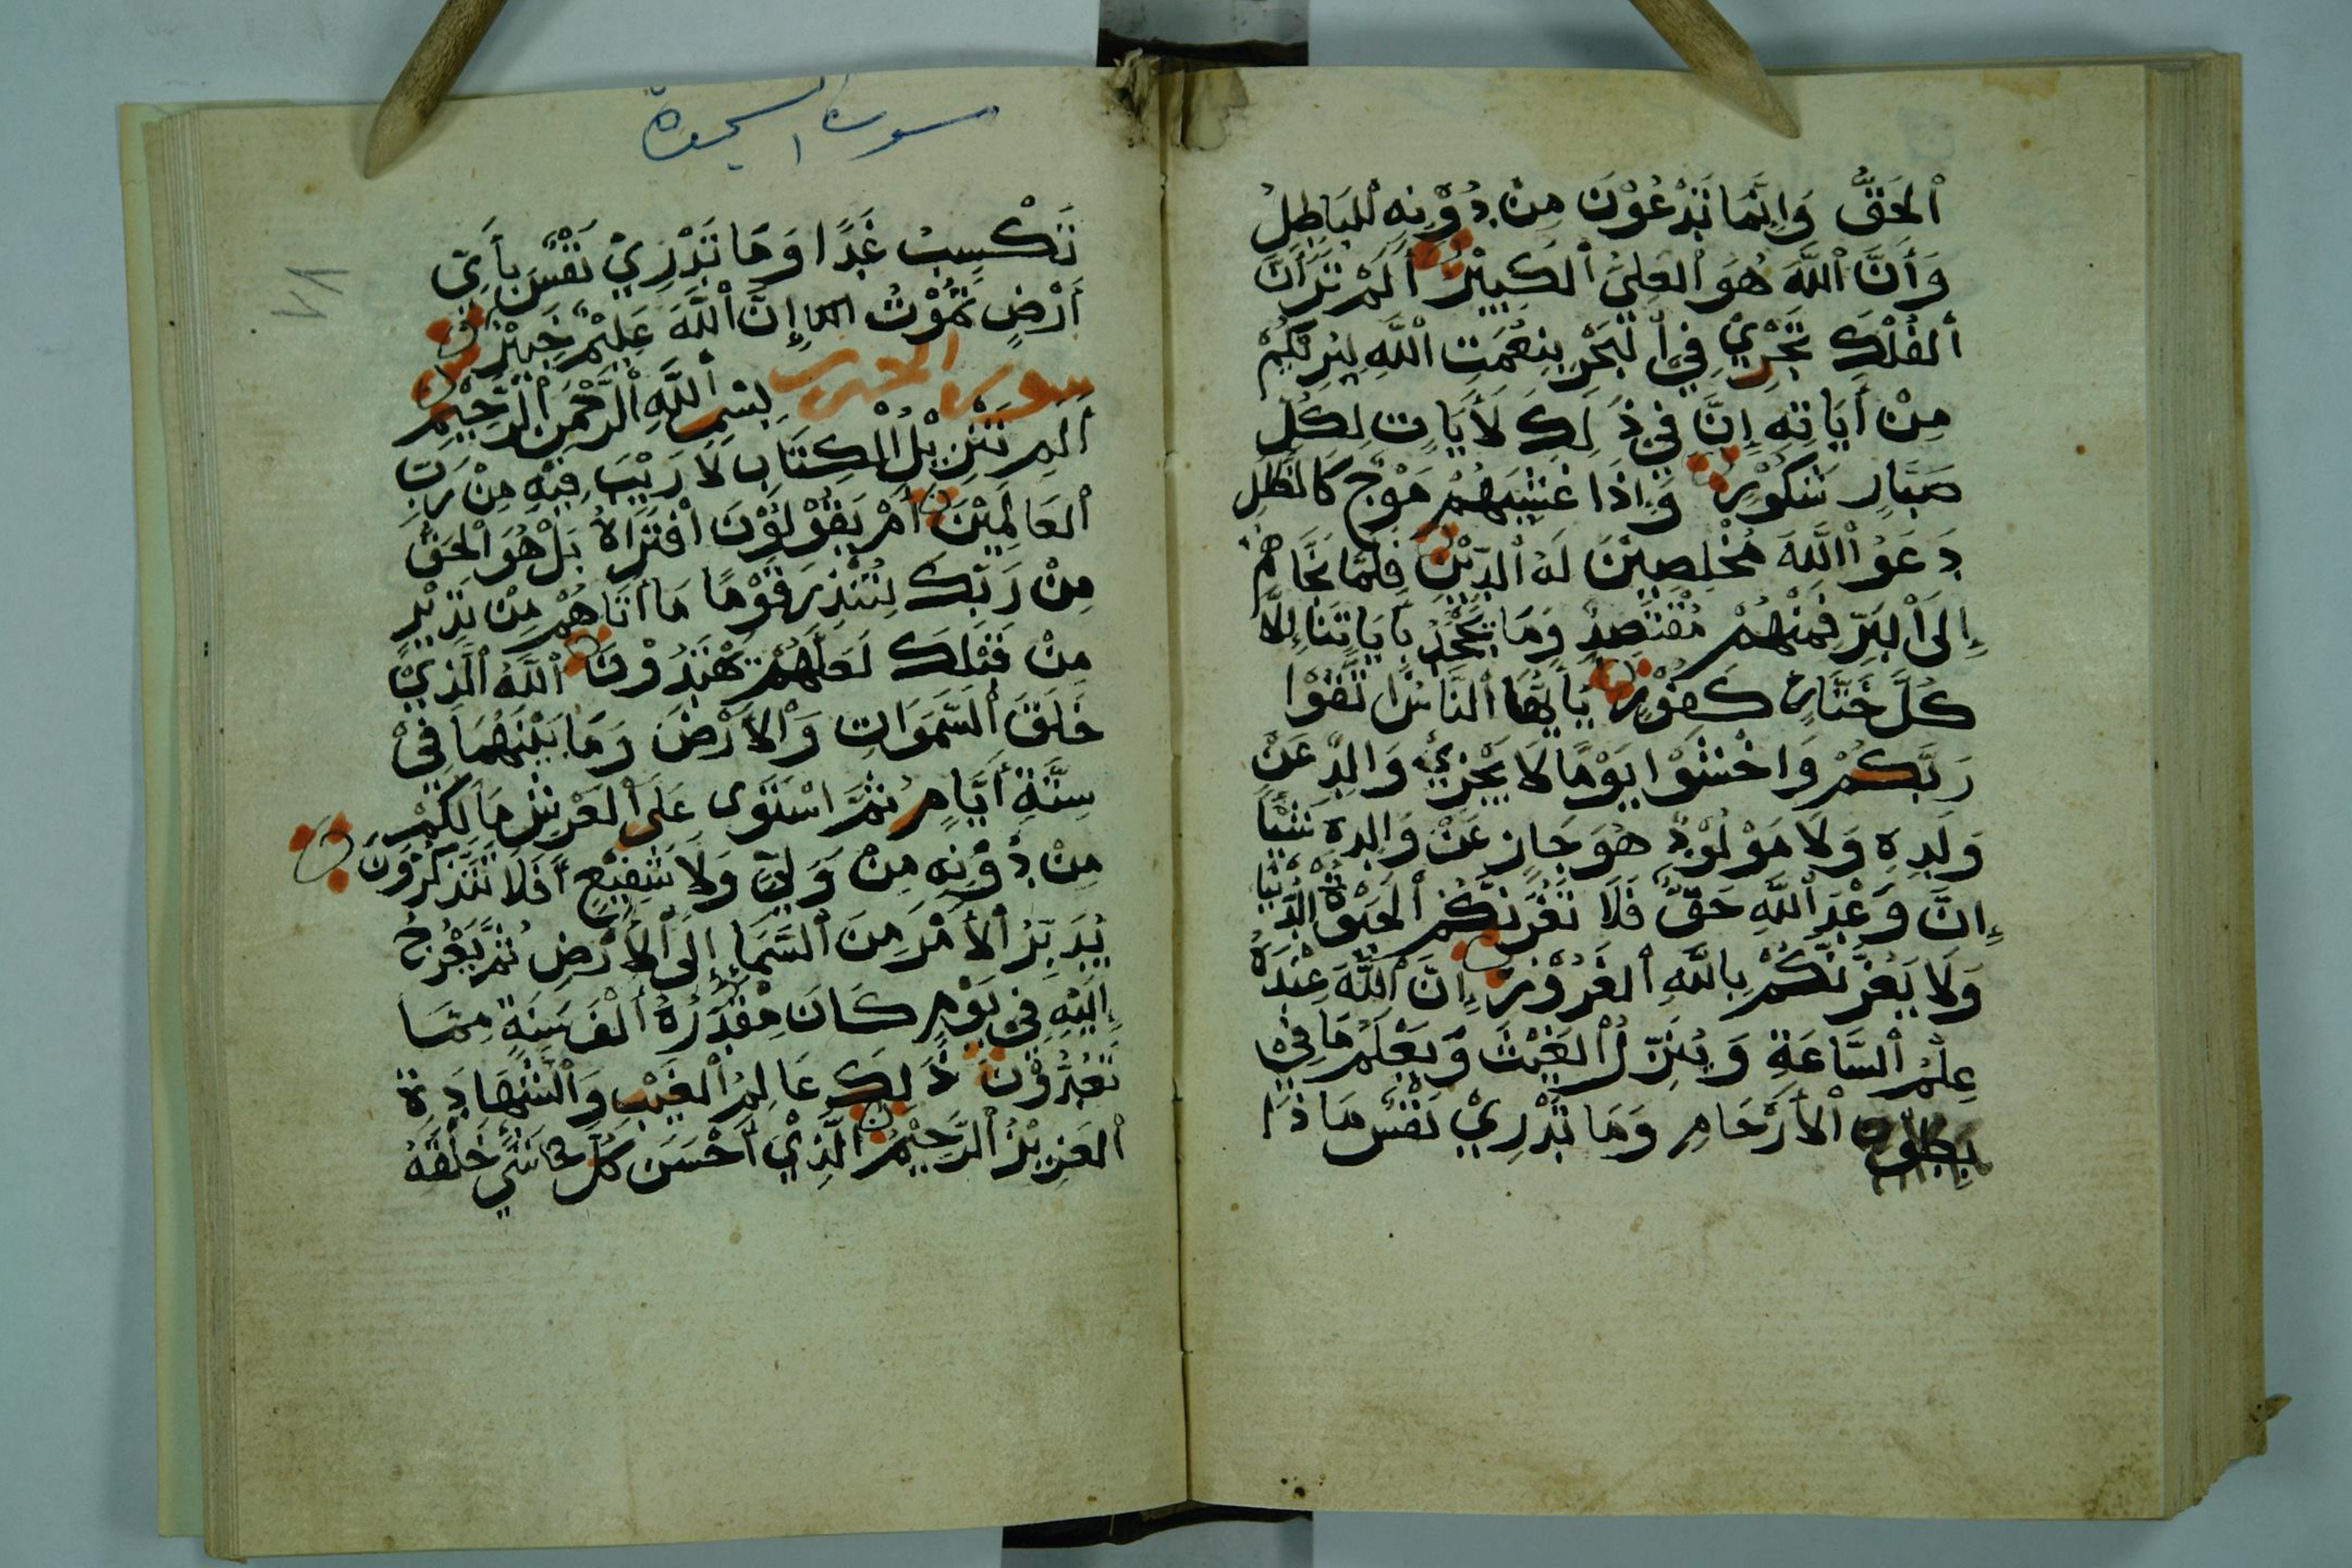 ٱلحَقُّ وَإِنَّمَا نَدْعُوْنَ مِنْ دُوْنِهِ ٱلبَاطِلُ
وَأَنَّ ٱللَّهَ هُوَ ٱلعَلِيُّ ٱلكَبِيْرُ أَلَمْ تَرَ أَنَّ
ٱلفُلْكَ تَجْرِيْ فِيْ ٱلبَحْرِ بِنِعْمَتِ ٱللَّهِ لِيُرِيَكُمْ
مِنْ أَيَاتِهِ إِنَّ فِيْ ذَلِكَ لَأَيَاتٍ لِكُلِّ
صَبَّارٍ شَكُوْرٍ وَإِذَا غَشِيَهُمْ مَوْجٌ كَالظُّلَلِ
دَعَوُا ٱللَّهَ مُخْلِصِيْنَ لَهُ ٱلدِّيْنَ فَلَمَّا نَجَّاهُمْ
إِلَى ٱلبَرِّ فَمِنْهُمْ مُقْتَصِدٌ وَمَا يَجْحَدُ بِأَيَاتِنَا إِلَّا
كُلُّ خَتَّارٍ كَفُوْرٍ يَأَيُّهَا ٱلنَّاسُ اتَّقُوْا
رَبَّكُمْ وَاخْشَوْا يَوْمًا لَا يَجْزِيْ وَالِدٌ عَنْ
وَلَدِهِ وَلَا مَوْلُوْدٌ هُوَ جَازٍ عَنْ وَالِدِهِ شَيْئًا
إِنَّ وَعْدَ ٱللَّهِ حَقٌّ فَلَا تَغُرَّنَّكُمُ ٱلحَيَوٰةُ ٱلدُّنْيَا
وَلَا يَغُرَّنَّكُمْ بِاللَّهِ ٱلغَرُوْرُ إِنَّ ٱللَّهَ عِنْدَهُ
عِلْمُ ٱلسَّاعَةِ وَيُنَزِّلُ ٱلغَيْثَ وَيَعْلَمُ مَا فِيْ
ٱلأَرْحَامِ وَمَا تَدْرِيْ نَفْسٌ مَاذَا
سورة السجدة
٧٨
تَكْسِبُ غَدًا وَمَا تَدْرِيْ نَفْسٌ بِأَيِّ
أَرْضٍ تَمُوْتُ إِنَّ ٱللَّهَ عَلِيْمٌ خَبِيْرٌ
سورة بِسْمِ ٱللَّهِ ٱلرَّحْمَنِ ٱلرَّحِيْمِ
أَلم تَنْزِيْلُ ٱلكِتَابِ لَا رَيْبَ فِيْهِ مِنْ رَبِّ
ٱلعَالَمِيْنَ أَمْ يَقُوْلُوْنَ افْتَرَاهُ بَلْ هُوَ ٱلحَقُّ
مِنْ رَبِّكَ لِتُنْذِرَ قَوْمًا مَا أَتَاهُمْ مِنْ نَذِيْرٍ
مِنْ قَبْلِكَ لَعَلَّهُمْ يَهْتَدُوْنَ ٱللَّهُ ٱلَّذِيْ
خَلَقَ ٱلسَّمَوَاتِ وَٱلأَرْضَ وَمَا بَيْنَهُمَا فِيْ
سِتَّةِ أَيَّامٍ ثُمَّ اسْتَوَى عَلَى ٱلعَرْشِ مَا لَكُمْ
مِنْ دُوْنِهِ مِنْ وَلِيٍّ وَلَا شَفِيْعٍ أَفَلَا تَتَذَكَّرُوْنَ
يُدَبِّرُ ٱلأَمْرَ مِنَ ٱلسَّمَاءِ إِلَى ٱلأَرْضِ ثُمَّ يَعْرُجُ
إِلَيْهِ فِيْ يَوْمٍ كَانَ مِقْدَرُهُ أَلْفَ سَنَةٍ مِمَّا
تَعُدُّوْنَ ذَلِكَ عَالِمُ ٱلغَيْبِ وَٱلشَّهَادَةِ
ٱلعَزِيْزُ ٱلرَّحِيْمُ ٱلَّذِيْ أَحْسَنَ كُلَّ شَيْءٍ خَلَقَهُ